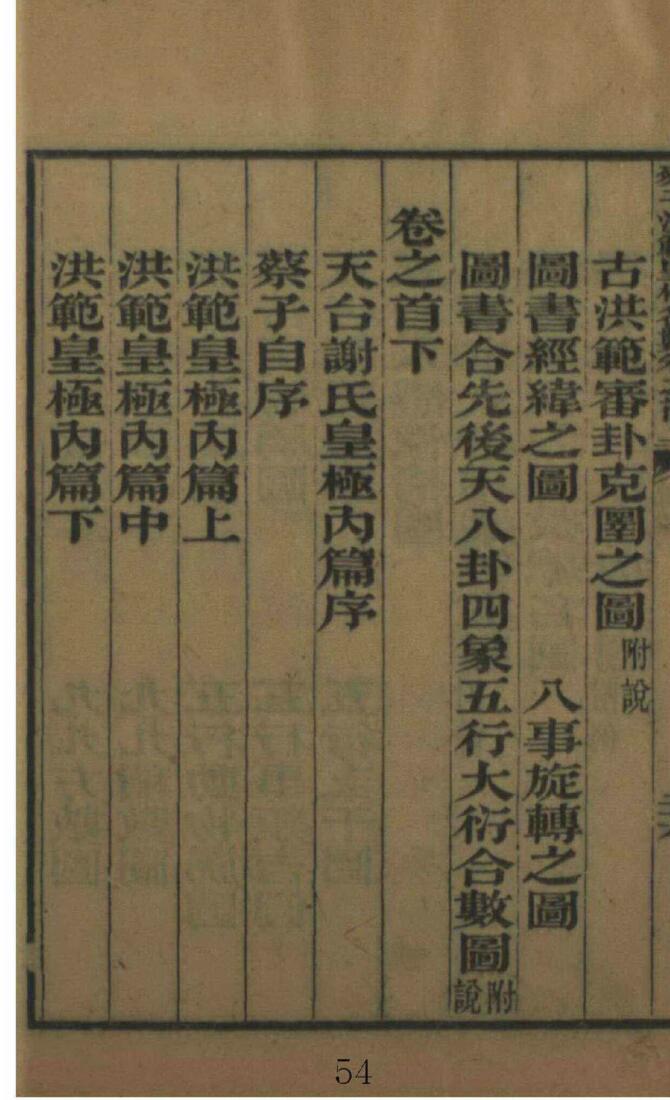 古洪範審卦克圛之圖附說
圖書經緯之圖　八事旋轉之圖
圖書合先後天八卦四象五行大衍合數圖附說
卷之首下
天台謝氏皇極內篇序
蔡子自序
洪範皇極內篇上
洪範皇極內篇中
洪範皇極內篇下
54